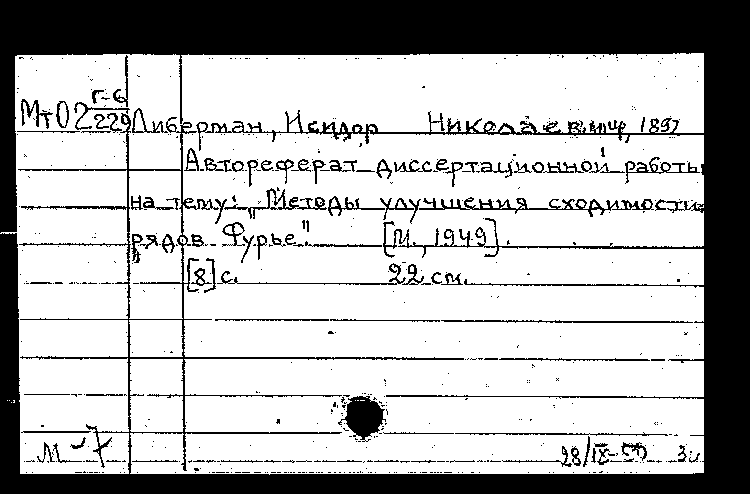 Мт02 Г-6/229 Либерман, Исидор Николаевич, 1897
Автореферат диссертационной работы
на тему: "Методы улучшения сходимости
рядов Фурье". [М., 1949].
[8] с. 22 см.
М-7
28/IX-